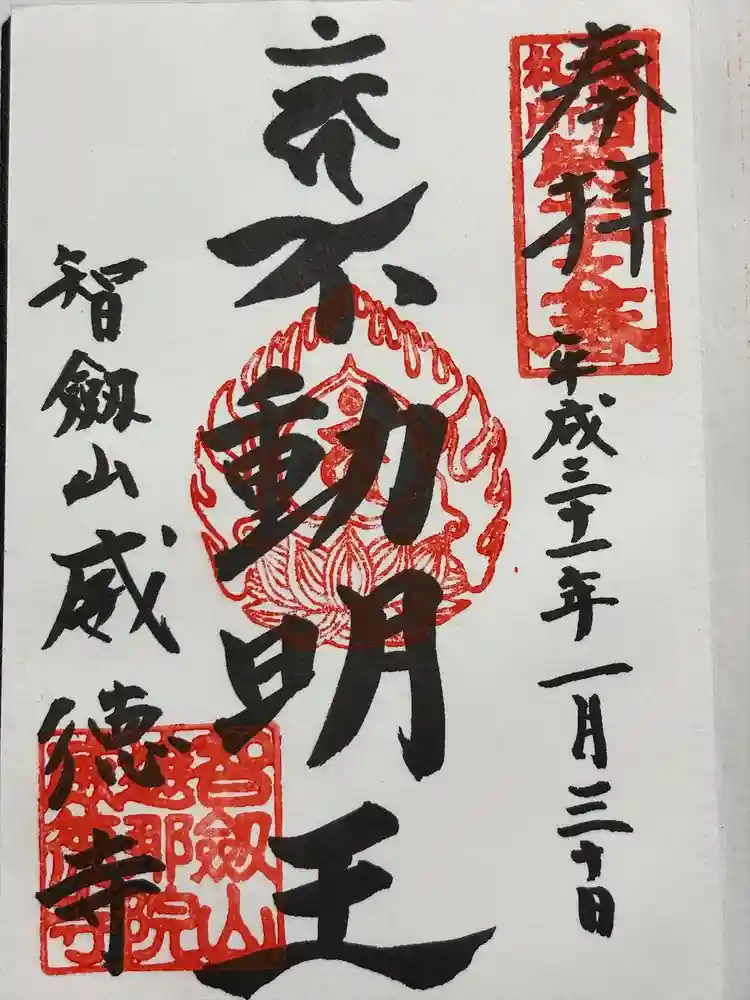 奉拝
平成三十一年一月三十日
不動明王
智劔山威徳寺
智劔山